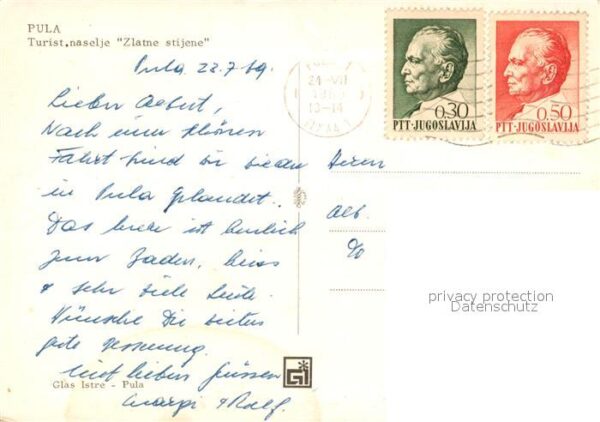 PULA
Turist.naselje "Zlatne stijene"
Pula 22.7.69.
Lieber Albert,
Nach einer schönen
Fahrt sind wir wieder
in Pula gelandet.
Das Meer ist herrlich
zum Baden, heiss
& sehr viele Leute.
Wünsche Dir weiter
gute Besserung.
Mit lieben Grüssen
& Rolf.
Glas Istre - Pula
24-VII
13-14
0.30
PTT-JUGOSLAVIJA
0.50
PTT-JUGOSLAVIJA
Herrn
Alb.
%
privacy protection
Datenschutz